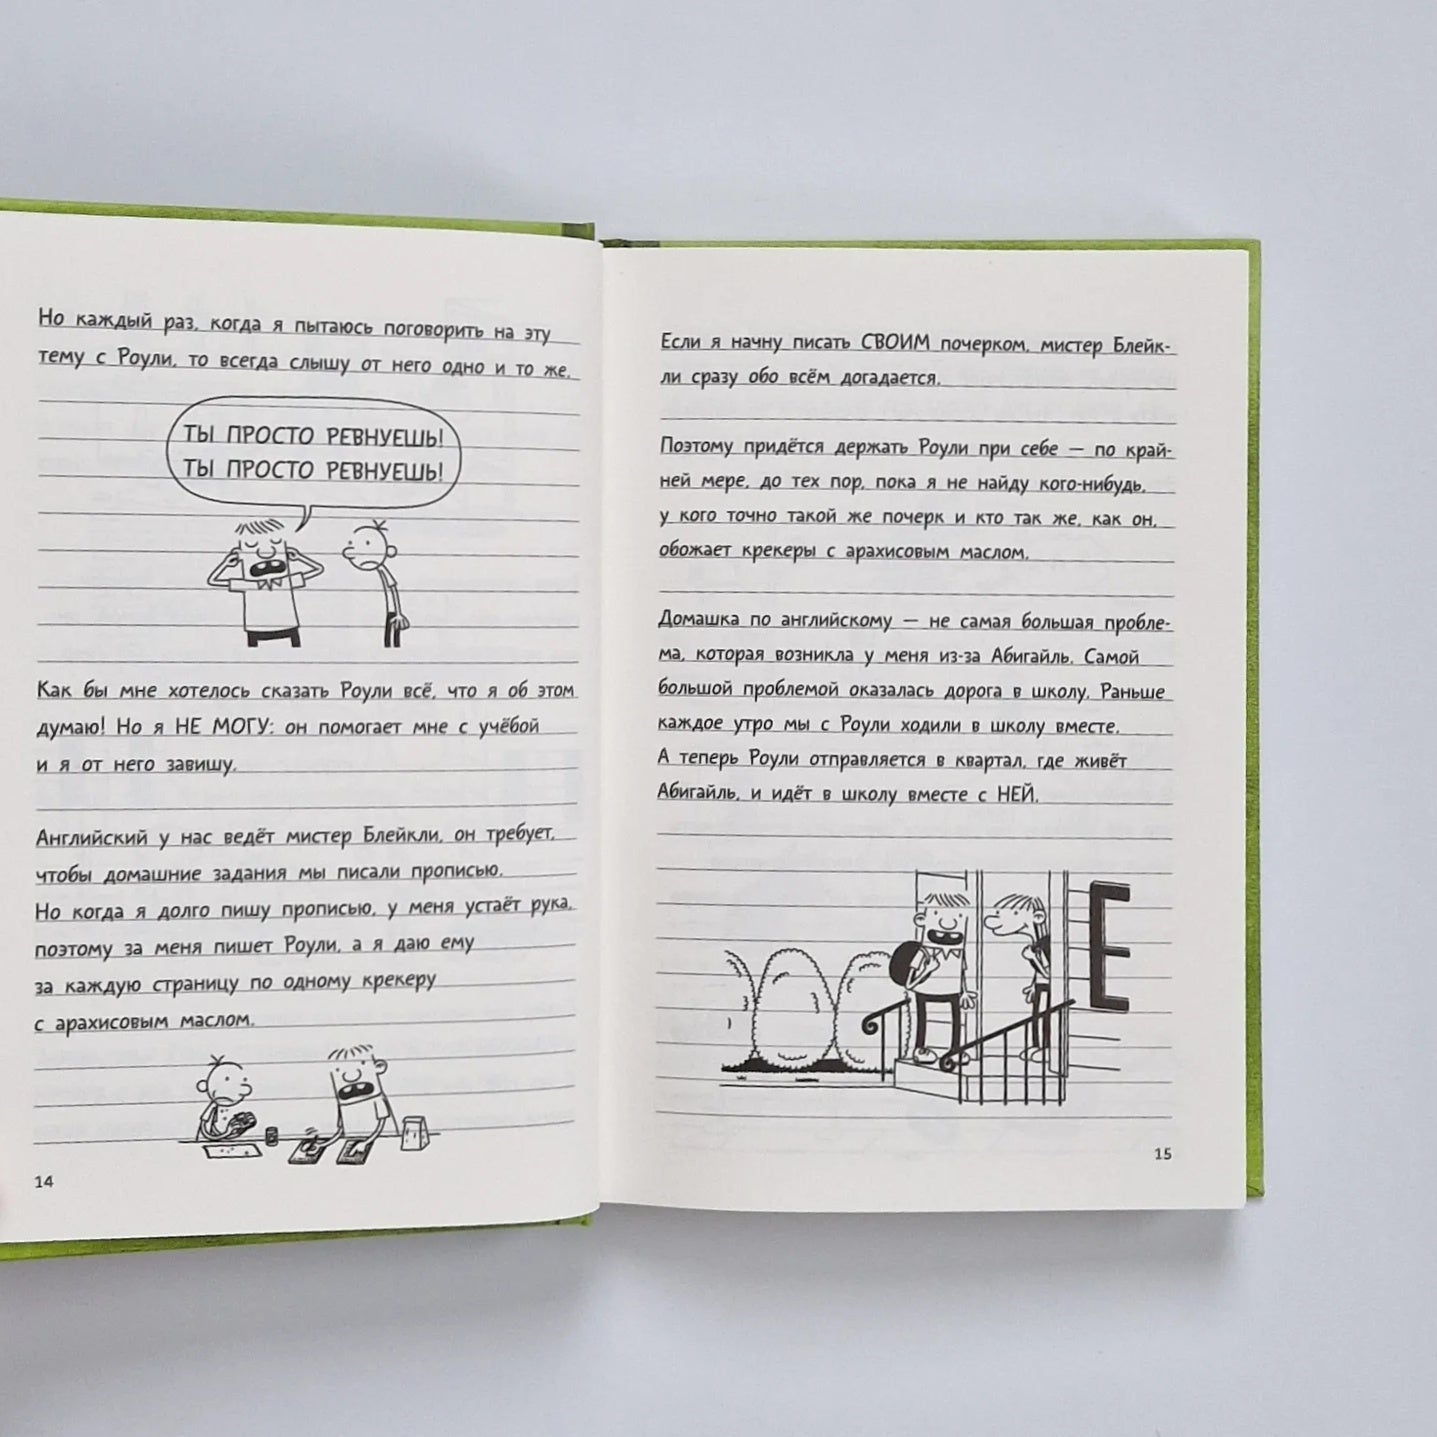 Но каждый раз, когда я пытаюсь поговорить на эту
тему с Роули, то всегда слышу от него одно и то же.
ТЫ ПРОСТО РЕВНУЕШЬ!
ТЫ ПРОСТО РЕВНУЕШЬ!
Как бы мне хотелось сказать Роули всё, что я об этом
думаю! Но я НЕ МОГУ: он помогает мне с учёбой
и я от него завишу.
Английский у нас ведёт мистер Блейкли, он требует,
чтобы домашние задания мы писали прописью.
Но когда я долго пишу прописью, у меня устаёт рука,
поэтому за меня пишет Роули, а я даю ему
за каждую страницу по одному крекеру
с арахисовым маслом.
14
Если я начну писать СВОИМ почерком, мистер Блейк-
ли сразу обо всём догадается.
Поэтому придётся держать Роули при себе — по край-
ней мере, до тех пор, пока я не найду кого-нибудь,
у кого точно такой же почерк и кто так же, как он,
обожает крекеры с арахисовым маслом.
Домашка по английскому — не самая большая пробле-
ма, которая возникла у меня из-за Абигайль. Самой
большой проблемой оказалась дорога в школу. Раньше
каждое утро мы с Роули ходили в школу вместе.
А теперь Роули отправляется в квартал, где живёт
Абигайль, и идёт в школу вместе с НЕЙ.
15